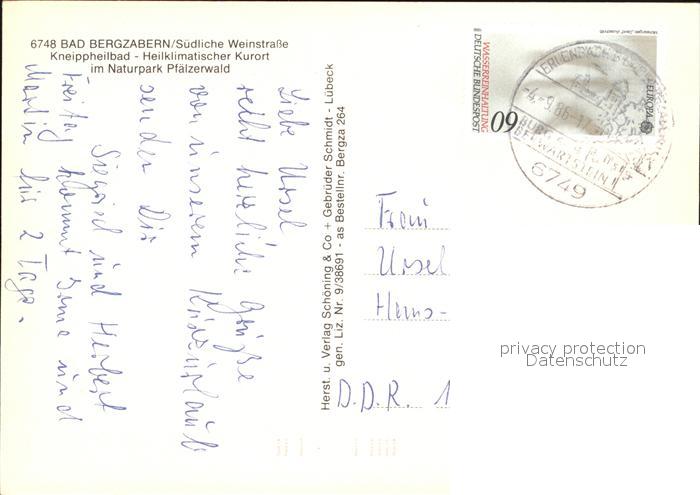 6748 BAD BERGZABERN/Südliche Weinstraße
Kneippheilbad - Heilklimatischer Kurort
im Naturpark Pfälzerwald
Liebe Ursel
recht herzliche Grüße
von unserem Kurzurlaub
senden Dir
Siegried und Herbert
Freitag kommt und
Martin für 2 Tage.
Herst. u. Verlag Schöning & Co + Gebrüder Schmidt - Lübeck
gen. Liz. Nr. 9/38691 - as Bestellnr. Bergza 264
60
WASSERREINHALTUNG
DEUTSCHE BUNDESPOST
EUROPA
ERLENBACH B
-4.-9.86-11
BURG
BERWARTSTEIN
6749
Frau
Ursel
Heins-
D.D.R. 1
privacy protection
Datenschutz